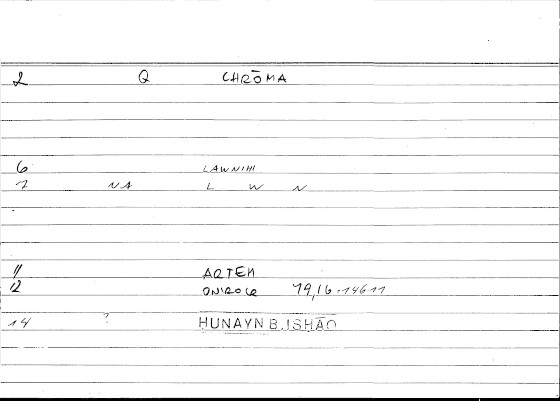 2 Q CHRŌMA
6 LAWNIHI
7 NA L W N
11 ARTEM
12 ONIROCR 79,16-14611
14 ? HUNAYN B.ISHĀQ